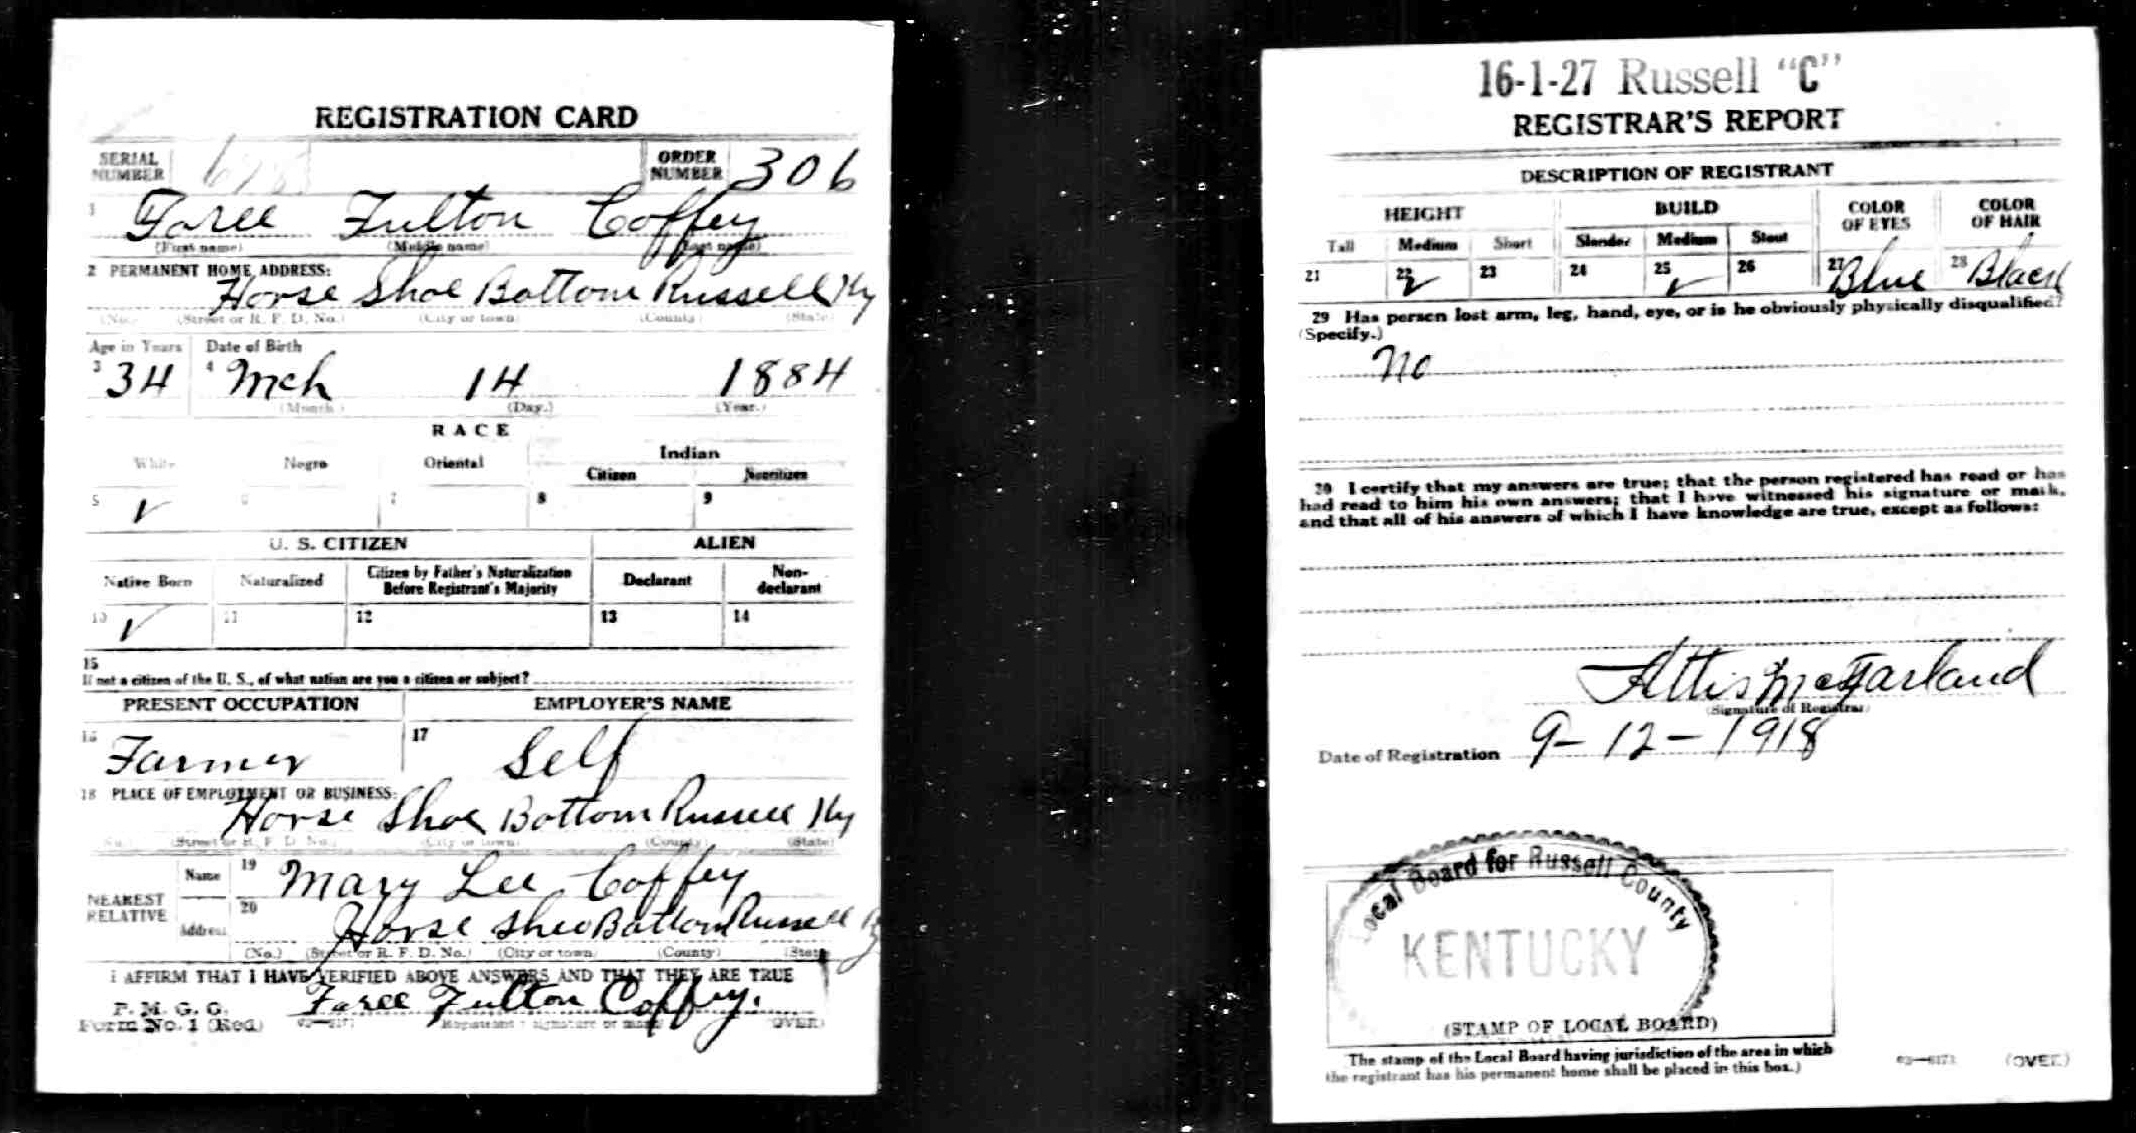 REGISTRATION CARD
SERIAL NUMBER
ORDER NUMBER 306
1 Faree Fulton Coffey
(First name) (Middle name) (Last name)
2 PERMANENT HOME ADDRESS:
Horse Shoe Bottom Russell Ky
(No.) (Street or R. F. D. No.) (City or town) (County) (State)
Age in Years Date of Birth
3 34 4 Mch 14 1884
(Month.) (Day.) (Year.)
RACE
White Negro Oriental Indian
Citizen Noncitizen
5 ✓ 6 7 8 9
U. S. CITIZEN ALIEN
Native Born Naturalized Citizen by Father's Naturalization Before Registrant's Majority Declarant Non-declarant
10 ✓ 11 12 13 14
15
If not a citizen of the U. S., of what nation are you a citizen or subject?
PRESENT OCCUPATION EMPLOYER'S NAME
16 Farmer 17 Self
18 PLACE OF EMPLOYMENT OR BUSINESS:
Horse Shoe Bottom Russell Ky
(No.) (Street or R. F. D. No.) (City or town) (County) (State)
NEAREST RELATIVE
Name 19 Mary Lee Coffey
Address 20 Horse Sheo Bottom Russell Ky
(No.) (Street or R. F. D. No.) (City or town) (County) (State)
I AFFIRM THAT I HAVE VERIFIED ABOVE ANSWERS AND THAT THEY ARE TRUE
P. M. G. O.
Form No. 1 (Red) Faree Fulton Coffey.
(Registrant's signature or mark) (OVER)
16-1-27 Russell "C"
REGISTRAR'S REPORT
DESCRIPTION OF REGISTRANT
HEIGHT BUILD COLOR OF EYES COLOR OF HAIR
Tall Medium Short Slender Medium Stout
21 22 ✓ 23 24 25 ✓ 26 27 Blue 28 Black
29 Has person lost arm, leg, hand, eye, or is he obviously physically disqualified?
(Specify.)
No
30 I certify that my answers are true; that the person registered has read or has
had read to him his own answers; that I have witnessed his signature or mark,
and that all of his answers of which I have knowledge are true, except as follows:
Attis McFarland
(Signature of Registrar)
Date of Registration 9-12-1918
Local Board for Russell County
KENTUCKY
(STAMP OF LOCAL BOARD)
The stamp of the Local Board having jurisdiction of the area in which
the registrant has his permanent home shall be placed in this box.)
03—6171 (OVER)